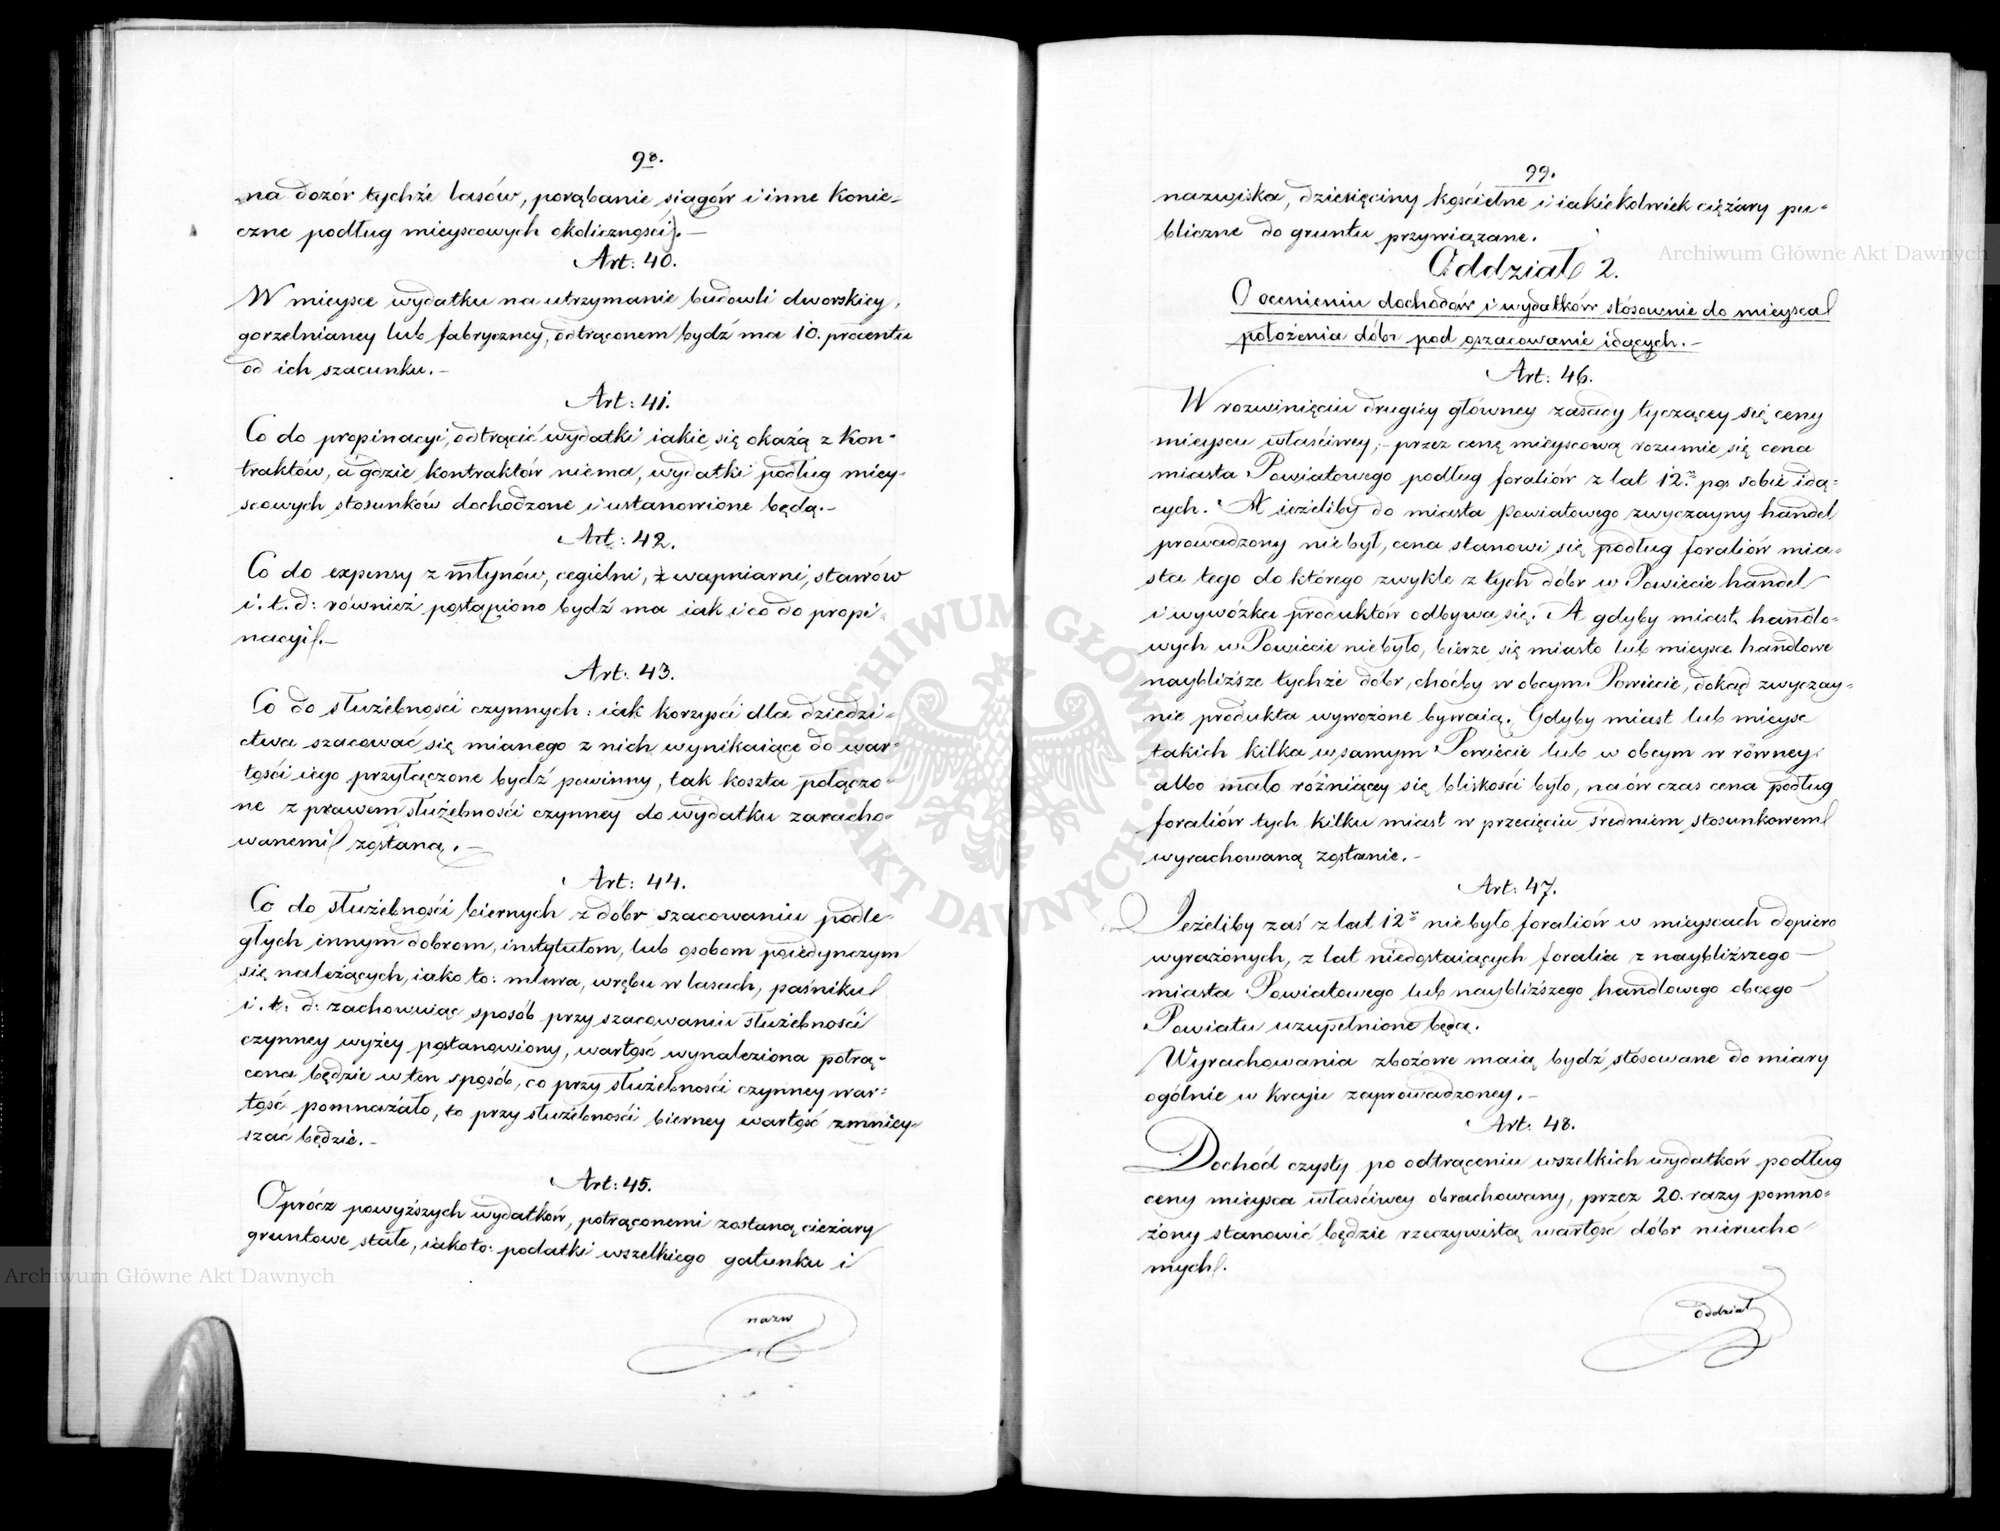 98.
na dozór tychże lasów, porąbanie siągów i inne konie-
czne podług mieyscowych okoliczności). —
Art: 40.
W mieysce wydatku na utrzymanie budowli dworskiey,
gorzelnianey lub fabryczney, odtrąconem bydź ma 10. procentu
od ich szacunku. –
Art: 41.
Co do propinacyi, odtrącić wydatki iakie się okażą z kon-
traktów, a gdzie kontraktów niema, wydatki podług miey-
scowych stosunków dochodzone i ustanowione będą. –
Art: 42.
Co do expensy z młynów, cegielni, wapniarni, stawów
i. t. d: również postąpiono bydź ma iak i co do propi-
nacyi. –
Art: 43.
Co do służebności czynnych: iak korzyści dla dziedzi-
ctwa szacować się mianego z nich wynikaiące do war-
tości iego przyłączone bydź powinny, tak koszta połączo-
ne z prawem służebności czynney do wydatku zaracho-
wanemi zostaną. –
Art: 44.
Co do służebności biernych z dóbr szacowaniu podle-
głych innym dobrom, instytutom, lub osobom poiedynczym
się należących, iako to: mlewa, wrębu w lasach, paśniku
i. t. d: zachowuiąc sposób przy szacowaniu służebności
czynney wyżey postanowiony, wartość wynaleziona potrą-
cona będzie w ten sposób, co przy służebności czynney war-
tość pomnażało, to przy służebności bierney wartość zmniey-
szać będzie. –
Art: 45.
Oprócz powyższych wydatków, potrąconemi zostaną ciężary
gruntowe stałe, iako to: podatki wszelkiego gatunku i
nazw
99.
nazwiska, dziesięciny kościelne i iakiekolwiek ciężary pu-
bliczne do gruntu przywiązane.
Oddział 2.
O ocenieniu dochodów i wydatków stósownie do mieysca
położenia dóbr pod oszacowanie idących. –
Art: 46.
W rozwinięciu drugiey główney zasady tyczącey się ceny
mieyscu właściwey, – przez cenę mieyscową rozumie się cena
miasta Powiatowego podług foraliów z lat 12. po sobie idą-
cych. A ieżeliby do miasta powiatowego zwyczayny handel
prowadzony nie był, cena stanowi się podług foraliów mia-
sta tego do którego zwykle z tych dóbr w Powiecie handel
i wywózka produktów odbywa się. A gdyby miast handlo-
wych w Powiecie nie było, bierze się miasto lub mieysce handlowe
naybliższe tychże dóbr, choćby w obcym Powiecie, dokąd zwyczay-
nie produkta wywożone bywaią. Gdyby miast lub mieysc
takich kilka w samym Powiecie lub w obcym w równey
albo mało różniącey się bliskości było, na ów czas cena podług
foraliów tych kilku miast w przecięciu średniem stosunkowem
wyrachowaną zostanie. –
Art: 47.
Jeżeliby zaś z lat 12 nie było foraliów w mieyscach dopiero
wyrażonych, z lat niedostaiących foralia z naybliższego –
miasta Powiatowego lub naybliższego handlowego obcego –
Powiatu uzupełnione będą.
Wyrachowania zbożowe maią bydź stósowane do miary
ogólnie w kraju zaprowadzoney. –
Art: 48.
Dochód czysty po odtrąceniu wszelkich wydatków podług
ceny mieysca właściwey obrachowany, przez 20. razy pomno-
żony stanowić będzie rzeczywistą wartość dóbr nierucho-
mych.
oddział
Archiwum Główne Akt Dawnych
Archiwum Główne Akt Dawnych
ARCHIWUM GŁÓWNE AKT DAWNYCH